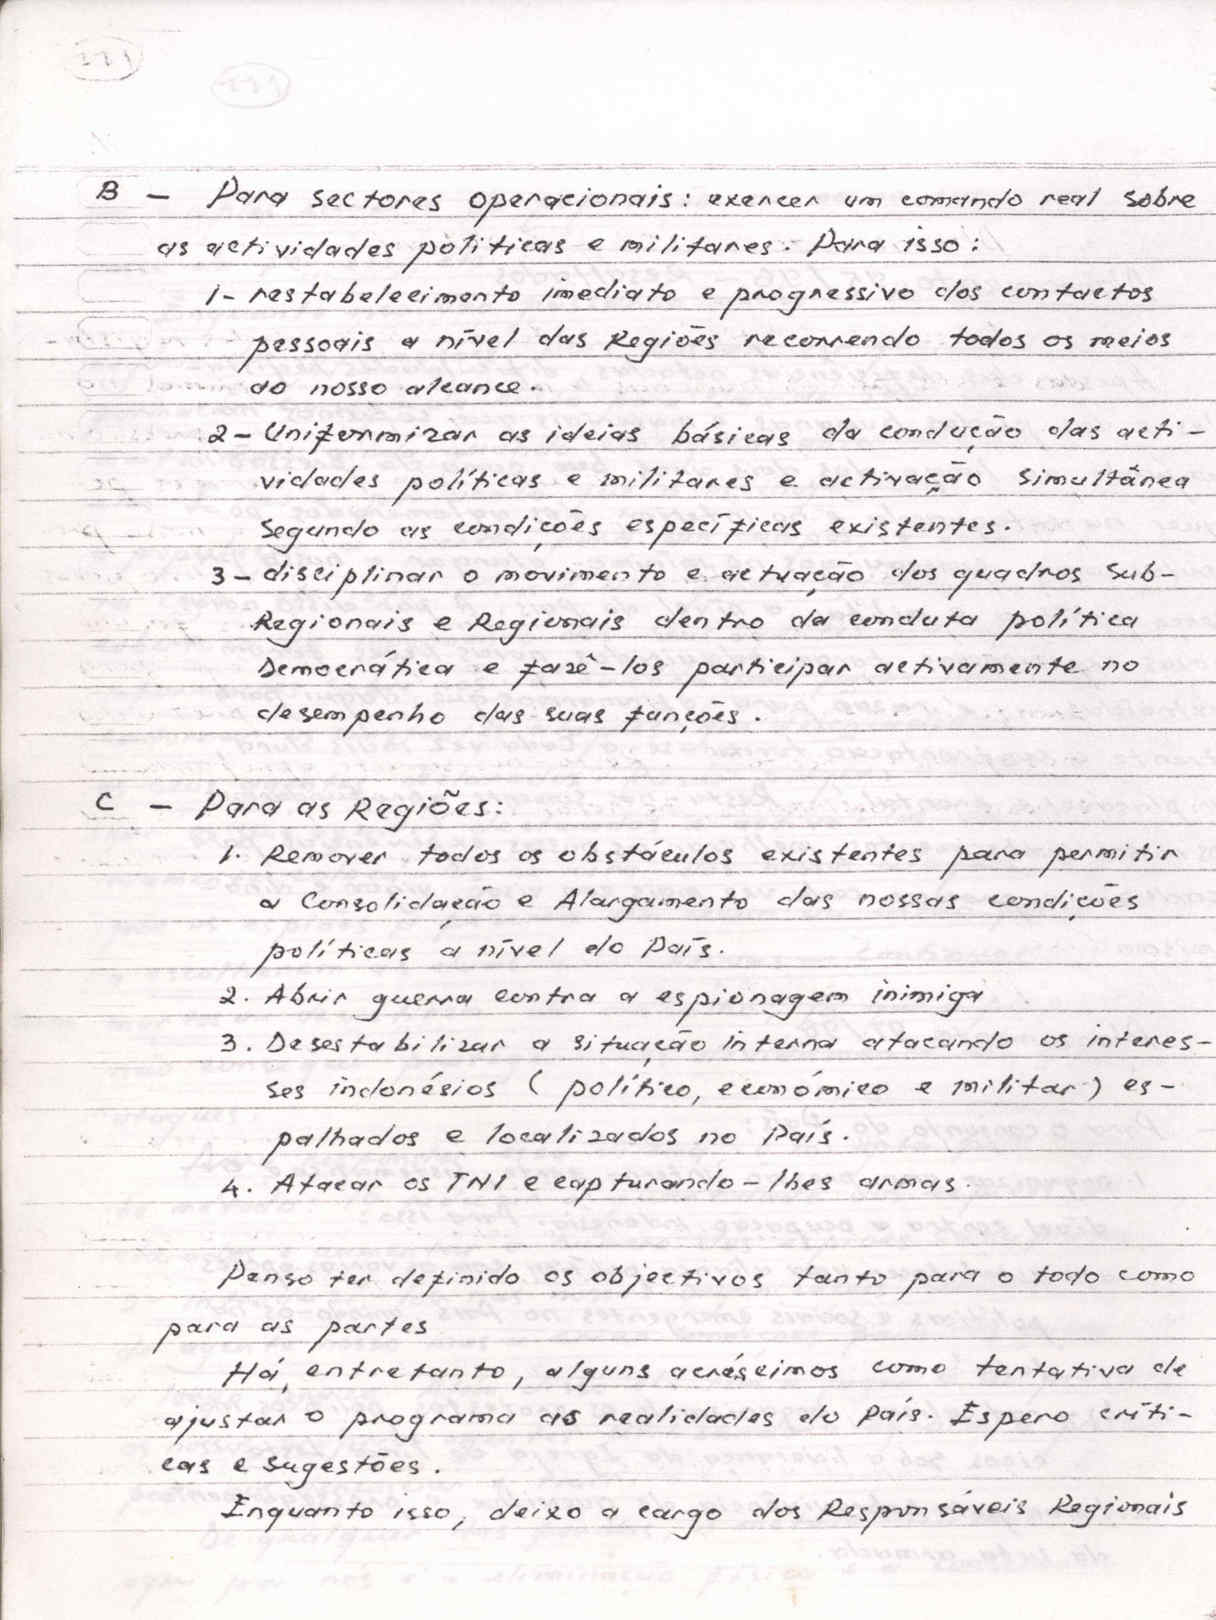 B - Para sectores operacionais: exercer um comando real sobre
as actividades políticas e militares. Para isso:
1- restabelecimento imediato e progressivo dos contactos
pessoais a nível das Regiões recorrendo todos os meios
ao nosso alcance.
2- Uniformizar as ideias básicas da condução das acti-
vidades políticas e militares e activação simultânea
segundo as condições específicas existentes.
3- disciplinar o movimento e actuação dos quadros Sub-
Regionais e Regionais dentro da conduta política
Democrática e fazê-los participar activamente no
desempenho das suas funções.
C - Para as Regiões:
1. Remover todos os obstáculos existentes para permitir
a Consolidação e Alargamento das nossas condições
políticas a nível do País.
2. Abrir guerra contra a espionagem inimiga
3. Desestabilizar a situação interna atacando os interes-
ses indonésios (político, económico e militar) es-
palhados e localizados no País.
4. Atacar os TNI e capturando-lhes armas.
Penso ter definido os objectivos tanto para o todo como
para as partes
Há, entretanto, alguns acréscimos como tentativa de
ajustar o programa as realidades do País. Espero críti-
cas e sugestões.
Enquanto isso, deixo a cargo dos Responsáveis Regionais